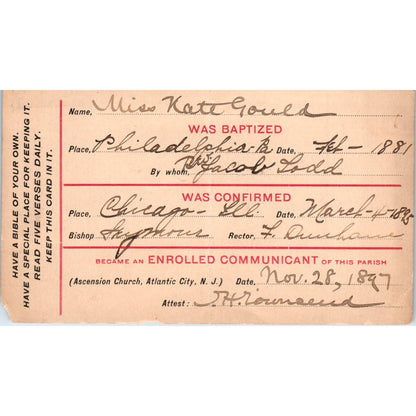 HAVE A BIBLE OF YOUR OWN.
HAVE A SPECIAL PLACE FOR KEEPING IT.
READ FIVE VERSES DAILY.
KEEP THIS CARD IN IT.
Name, Miss Kate Gould
WAS BAPTIZED
Place, Philadelphia Date, 1881
By whom, Jacob Todd
WAS CONFIRMED
Place, Chicago - Ill. Date, March - 4 - 1895
Bishop Seymour Rector, F. Dunham
BECAME AN ENROLLED COMMUNICANT OF THIS PARISH
(Ascension Church, Atlantic City, N. J.) Date, Nov. 28, 1897
Attest: J. H. Townsend